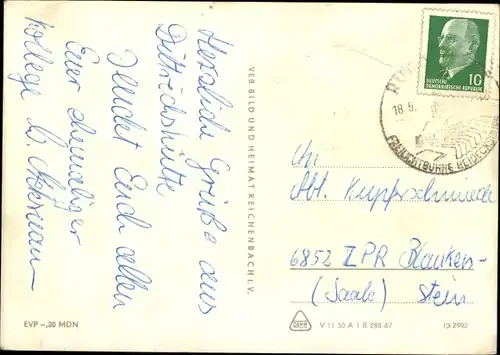 Herzliche Grüße aus
Dittrichshütte
sendet Euch allen
Euer ehemaliger
Kollege
VEB BILD UND HEIMAT REICHENBACH I. V.
10
DEUTSCHE
DEMOKRATISCHE REPUBLIK
18.5.
FREILICHTBÜHNE
An
Abt. Kupferschmiede
6852 ZPR Blanken-
(Saale) stein
EVP -,20 MDN
V 11 50 A 1 B 288 67